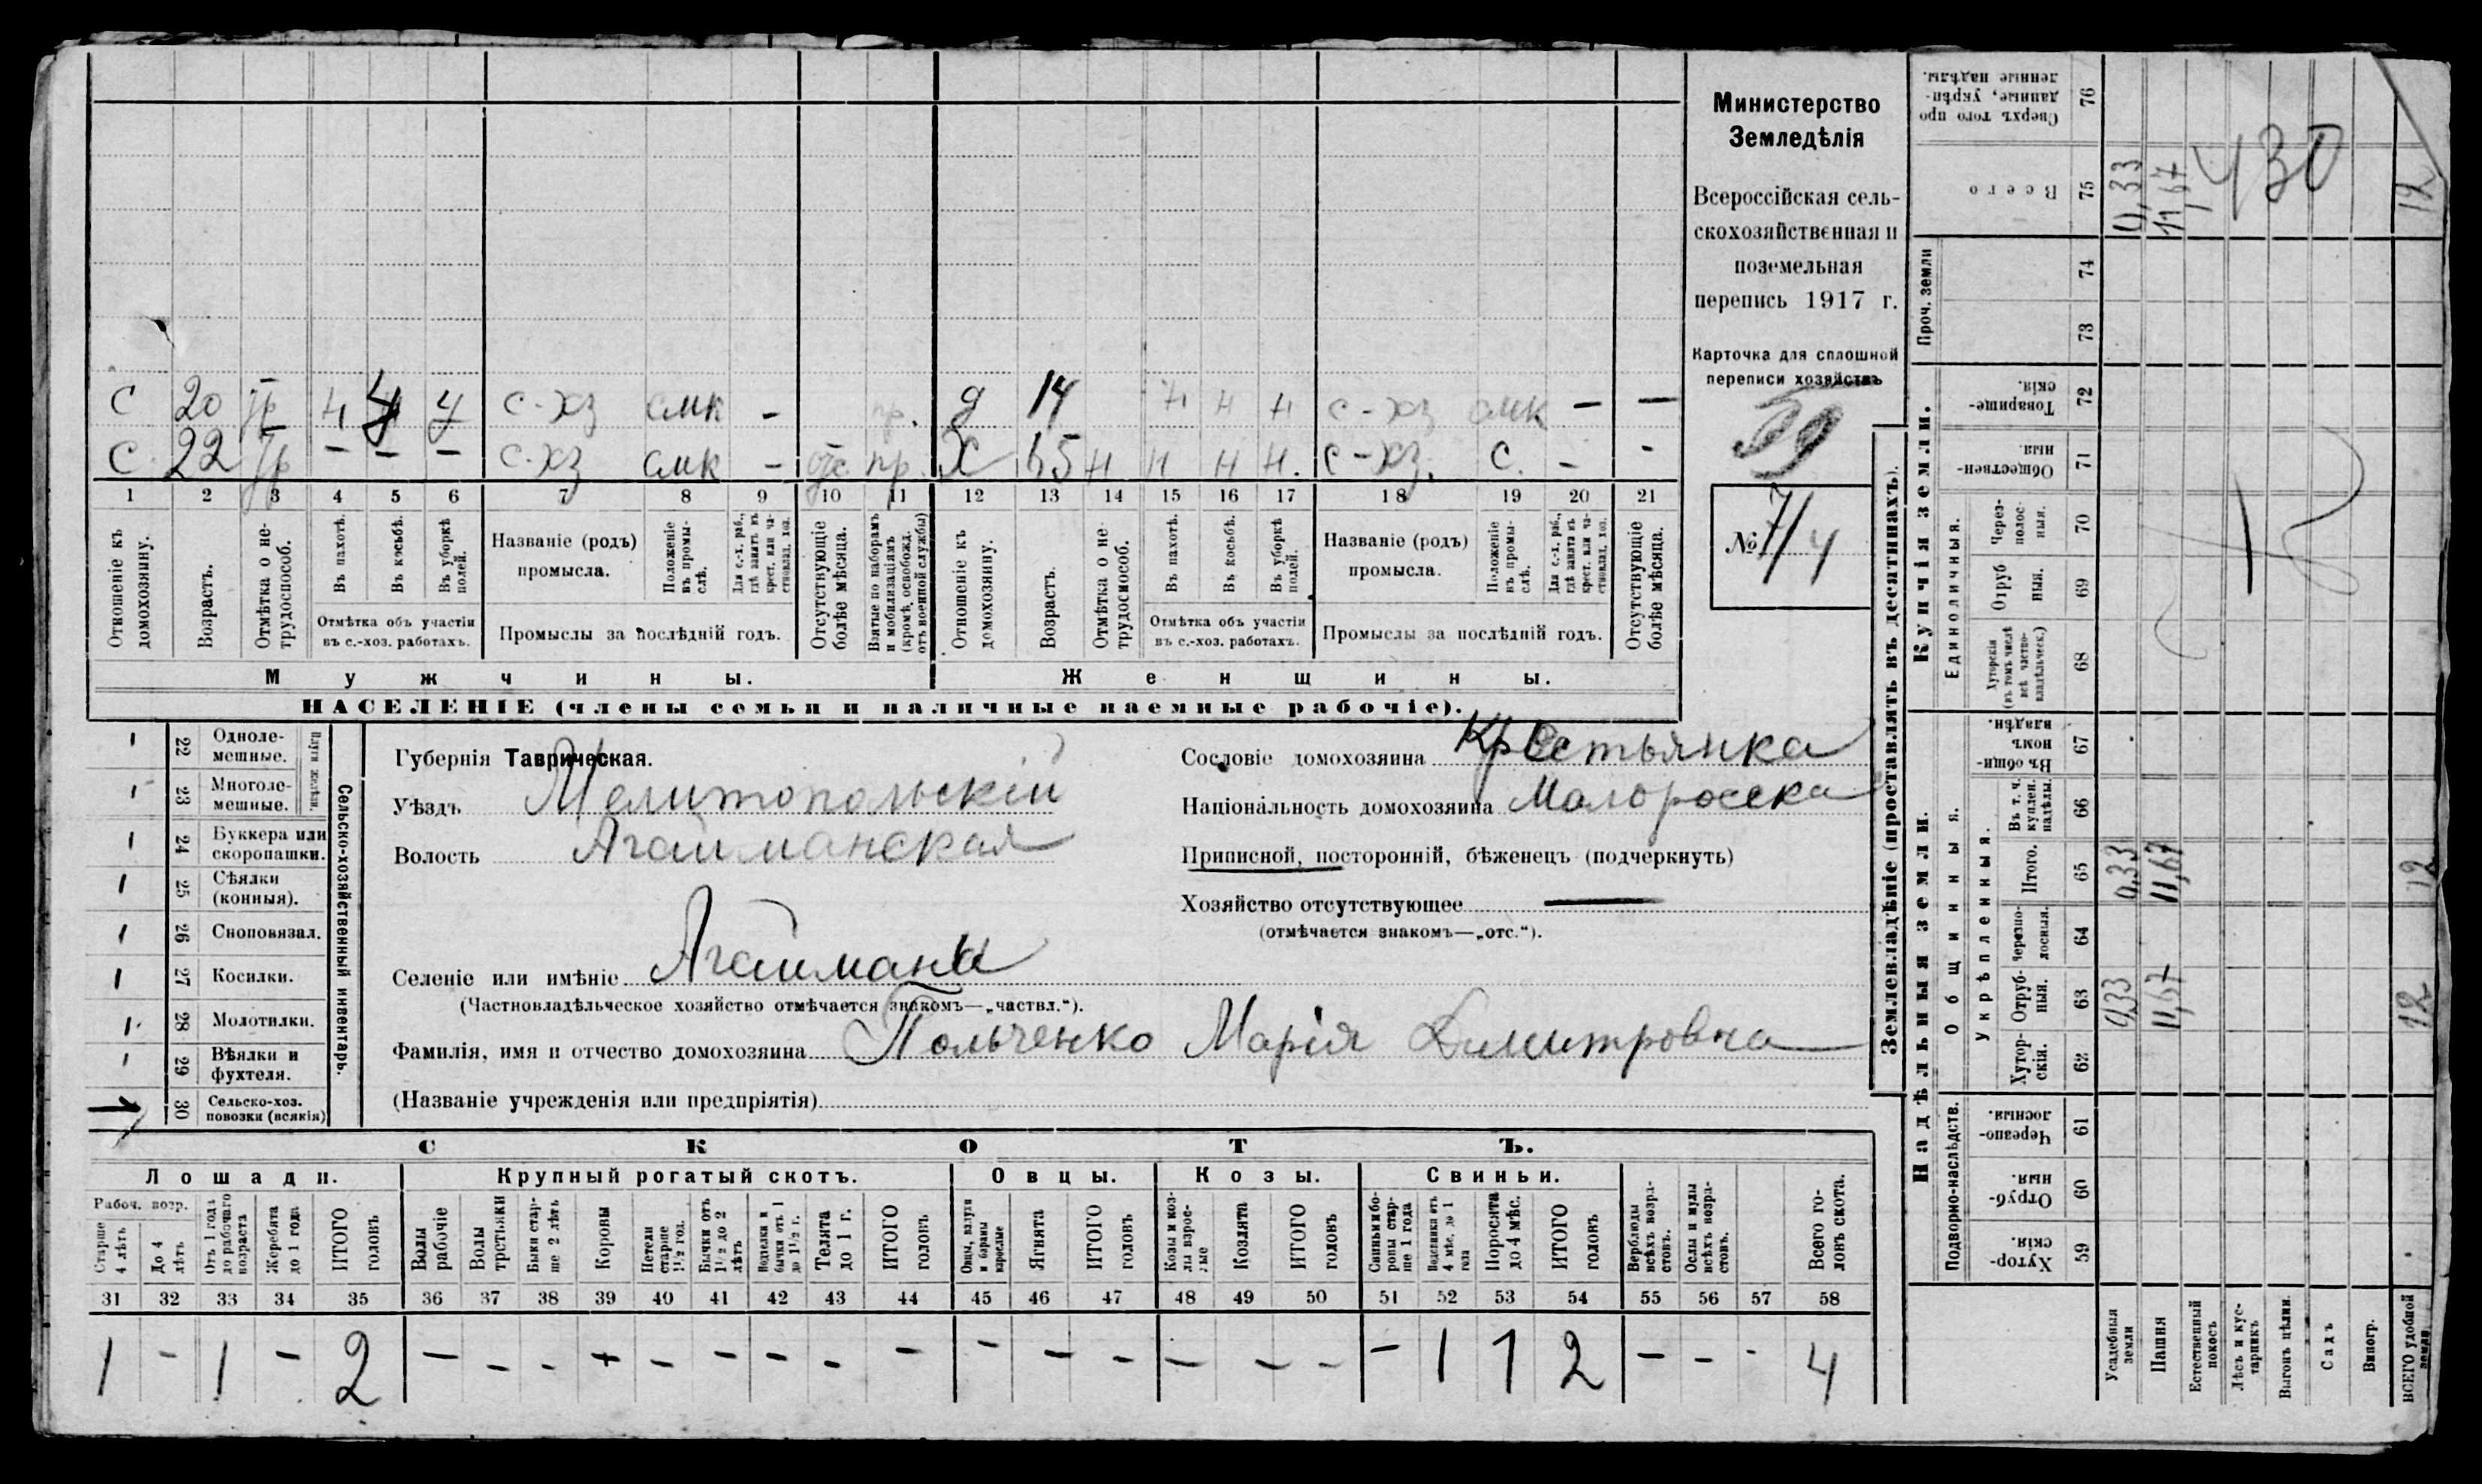 Министерство
Земледѣлія
Всероссійская сель-
скохозяйственная и
поземельная
перепись 1917 г.
Карточка для сплошной
переписи хозяйствъ
59
№ 7/4
С 20 У У с-хз смк - пр. д 14 н н н с-хз смк - -
С 22 - - - с-хз смк - отс пр. Х 55 н н н н. с-хз. С. - -
1 2 3 4 5 6 7 8 9 10 11 12 13 14 15 16 17 18 19 20 21
Отношеніе къ домохозяину.
Возрастъ.
Отмѣтка о не-трудоспособ.
Въ пахотѣ.
Въ косьбѣ.
Въ уборкѣ полей.
Отмѣтка объ участіи
въ с.-хоз. работахъ.
Названіе (родъ)
промысла.
Положеніе въ промы-слѣ.
Для с.-х. раб., гдѣ занятъ въ крест. или ча-ствовлад. хоз.
Промыслы за послѣдній годъ.
Отсутствующіе болѣе мѣсяца.
Взятые по наборамъ и мобилизаціямъ (кромѣ освобожд. отъ военной службы)
Отношеніе къ домохозяину.
Возрастъ.
Отмѣтка о не-трудоспособ.
Въ пахотѣ.
Въ косьбѣ.
Въ уборкѣ полей.
Отмѣтка объ участіи
въ с.-хоз. работахъ.
Названіе (родъ)
промысла.
Положеніе въ промы-слѣ.
Для с.-х. раб., гдѣ занята въ крест. или ча-ствовлад. хоз.
Промыслы за послѣдній годъ.
Отсутствующіе болѣе мѣсяца.
Мужчины.
Женщины.
НАСЕЛЕНІЕ (члены семьи и наличные наемные рабочіе).
Сельско-хозяйственный инвентарь.
1 22 Одноле-мешные.
1 23 Многоле-мешные.
1 24 Буккера или скоропашки.
1 25 Сѣялки (конныя).
1 26 Сноповязал.
1 27 Косилки.
1 28 Молотилки.
1 29 Вѣялки и фухтеля.
1 30 Сельско-хоз. повозки (всякія)
Губернія Таврическая.
Уѣздъ Мелитопольскій
Волость Агайманская
Селеніе или имѣніе Агайманы
(Частновладѣльческое хозяйство отмѣчается знакомъ—„частвл.“).
Фамилія, имя и отчество домохозяина Польченко Марія Димитровна
(Названіе учрежденія или предпріятія)
Сословіе домохозяина Крестьянка
Національность домохозяина Малоросска
Приписной, посторонній, бѣженецъ (подчеркнуть)
Хозяйство отсутствующее —
(отмѣчается знакомъ—„отс.“).
СКОТЪ.
Лошади. Крупный рогатый скотъ. Овцы. Козы. Свиньи.
Рабоч. возр.
Старше 4 лѣтъ
До 4 лѣтъ
Отъ 1 года до рабочаго возраста
Жеребята до 1 года
ИТОГО головъ
Волы рабочіе
Волы третьяки
Быки стар-ше 2 лѣтъ
Коровы
Нетели старше 1½ год.
Бычки отъ 1½ до 2 лѣтъ
Подтелки и бычки отъ 1 до 1½ г.
Телята до 1 г.
ИТОГО головъ
Овцы, валухи и бараны взрослые
Ягнята
ИТОГО головъ
Козы и коз-лы взрос-лые
Козлята
ИТОГО головъ
Свиньи и бо-ровы стар-ше 1 года
Подсвинки отъ 4 мѣс. до 1 года
Поросята до 4 мѣс.
ИТОГО головъ
Верблюды всѣхъ возра-стовъ.
Ослы и мулы всѣхъ возра-стовъ.
Всего го-ловъ скота.
31 32 33 34 35 36 37 38 39 40 41 42 43 44 45 46 47 48 49 50 51 52 53 54 55 56 57 58
1 - 1 - 2 - - - - - - - - - - - - - - - - 1 1 2 - - - 4
Землевладѣніе (проставлять въ десятинахъ).
Надѣльныя земли.
Купчія земли.
Проч. земли
Подворно-наслѣдств.
Общинныя.
Укрѣпленныя.
Единоличныя.
Хутор-скія. 59
Отруб-ныя. 60
Черезпо-лосныя. 61
Хутор-скія. 62
Отруб-ныя. 63 0,33 11,67 12
Черезпо-лосныя. 64
Итого. 65 0,33 11,67 12
Въ т. ч. куплен. надѣлы 66
Въ общи-номъ владѣн. 67
Хуторскія (въ томъ числѣ всѣ частно-владѣльческ.) 68
Отруб-ныя. 69
Через-полос-ныя. 70
Обществен-ныя. 71
Товарище-скія. 72
73
74
Всего 75 0,33 11,67 12
Сверхъ того про-данные, укрѣп-ленные надѣлы. 76
430
Усадебныя земли
Пашня
Естественный покосъ
Лѣсъ и кус-тарникъ
Выгонъ цѣлин.
Садъ
Виногр.
ВСЕГО удобной земли